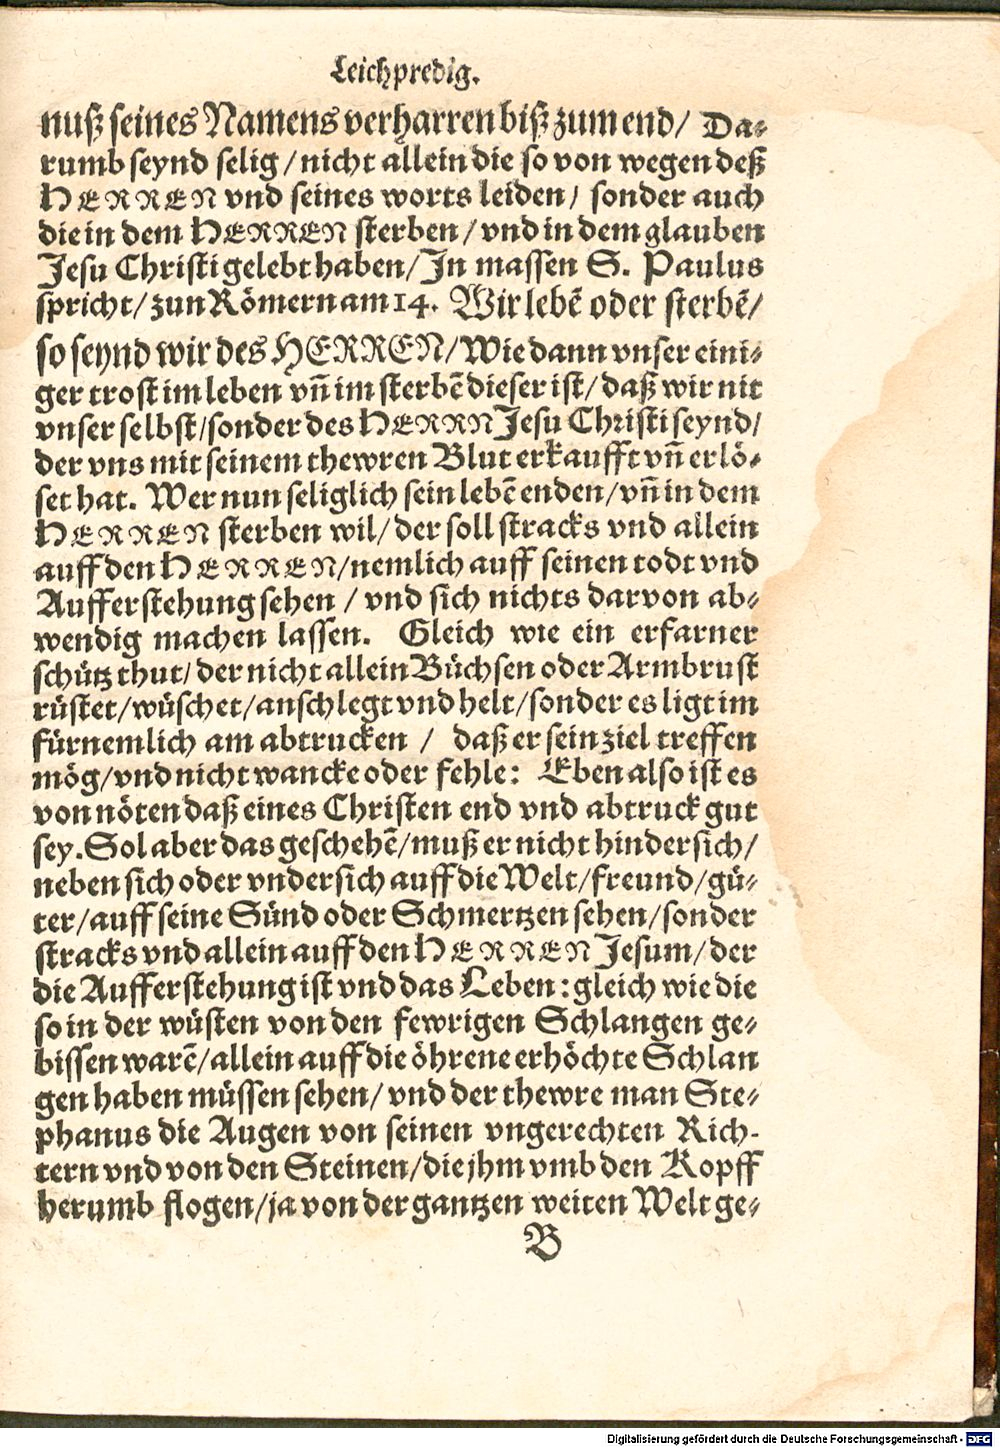 Leichpredig.
nuß seines Namens verharren biß zum end/ Da-
rumb seynd selig/nicht allein die so von wegen deß
HERREN vnd seines worts leiden/ sonder auch
die in dem HERREN sterben/vnd in dem glauben
Jesu Christi gelebt haben/In massen S. Paulus
spricht/zun Römern am 14. Wir lebē oder sterbē/
so seynd wir des HERREN/Wie dann vnser eini-
ger trost im leben vñ im sterbē dieser ist/daß wir nit
vnser selbst/sonder des HERRN Jesu Christi seynd/
der vns mit seinem thewren Blut erkaufft vñ erlö-
set hat. Wer nun seliglich sein lebē enden/vñ in dem
HERREN sterben wil/der soll stracks vnd allein
auff den HERREN/nemlich auff seinen todt vnd
Aufferstehung sehen/vnd sich nichts darvon ab-
wendig machen lassen. Gleich wie ein erfarner
schütz thut/der nicht allein Büchsen oder Armbrust
rüstet/wüschet/anschlegt vnd helt/sonder es ligt im
fürnemlich am abtrucken / daß er sein ziel treffen
mög/vnd nicht wancke oder fehle: Eben also ist es
von nöten daß eines Christen end vnd abtruck gut
sey. Sol aber das geschehē/muß er nicht hindersich/
neben sich oder vndersich auff die Welt/freund/gü-
ter/auff seine Sünd oder Schmertzen sehen/sonder
stracks vnd allein auff den HERREN Jesum/der
die Aufferstehung ist vnd das Leben: gleich wie die
so in der wüsten von den fewrigen Schlangen ge-
bissen warē/allein auff die öhrene erhöchte Schlan
gen haben müssen sehen/vnd der thewre man Ste-
phanus die Augen von seinen vngerechten Rich-
tern vnd von den Steinen/die jhm vmb den Kopff
herumb flogen/ja von der gantzen weiten Welt ge-
B
Digitalisierung gefördert durch die Deutsche Forschungsgemeinschaft - DFG